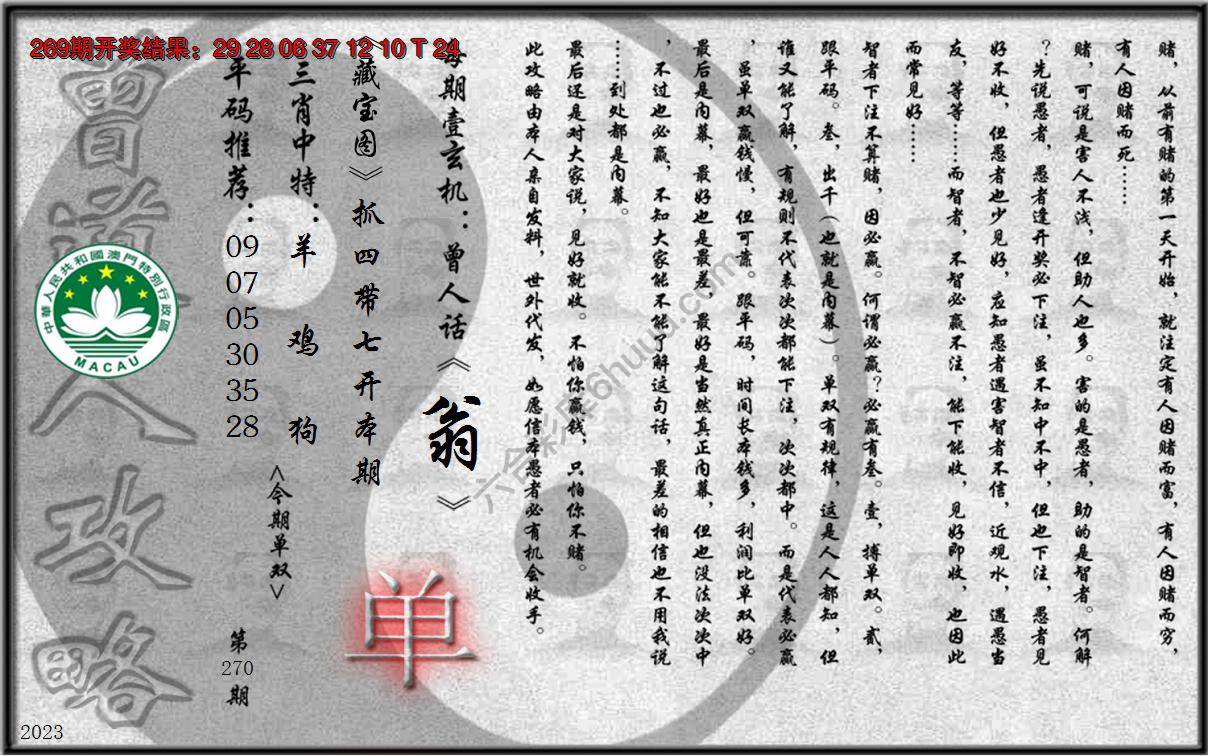 269期开奖结果：29 28 06 37 12 10 T 24
赌，从前有赌的第一天开始，就注定有人因赌而富，有人因赌而穷，
有人因赌而死……
赌，可说是害人不浅，但助人也多。害的是愚者，助的是智者。何解
？先说愚者，愚者逢开奖必下注，虽不知中不中，但也下注，愚者见
好不收，但愚者也少见好，应知愚者遇害智者不信，近观水，遇愚当
友，等等……而智者，不智必赢不注，能下能收，见好即收，也因此
而常见好……
智者下注不算赌，因必赢。何谓必赢？必赢有叁。壹，搏单双。贰，
跟平码。叁，出千（也就是内幕）。单双有规律，这是人人都知，但
谁又能了解，有规则不代表次次都能下注，次次都中。而是代表必赢
，虽单双赢钱慢，但可靠。跟平码，时间长本钱多，利润比单双好。
最后是内幕，最好也是最差，最好是当然真正内幕，但也没法次次中
，不过也必赢，不知大家能不能了解这句话，最差的相信也不用我说
……到处都是内幕。
最后还是对大家说，见好就收。不怕你赢钱，只怕你不赌。
此攻略由本人亲自发料，世外代发，如愿信本愚者必有机会收手。
每期壹玄机：曾人话《翁》
《藏宝图》抓四带七开本期
单
三肖中特：羊 鸡 狗
<今期单双>
平码推荐：09 07 05 30 35 28
第270期
曾道人攻略
中華人民共和國澳門特別行政區
MACAU
2023